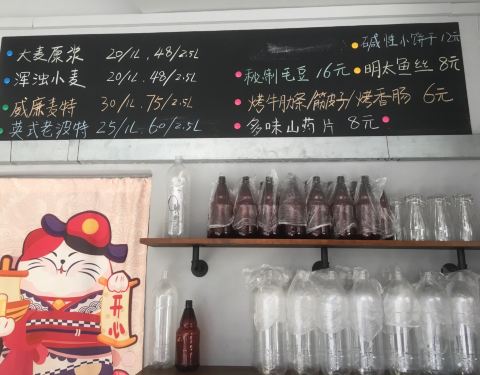 大麦原浆 20/1L, 48/2.5L
浑浊小麦 20/1L, 48/2.5L
威廉麦特 30/1L, 75/2.5L
英式老波特 25/1L, 60/2.5L
碱性小饼干 12元
秘制毛豆 16元
明太鱼丝 8元
烤牛肋条/筋皮子/烤香肠 6元
多味山药片 8元
开心